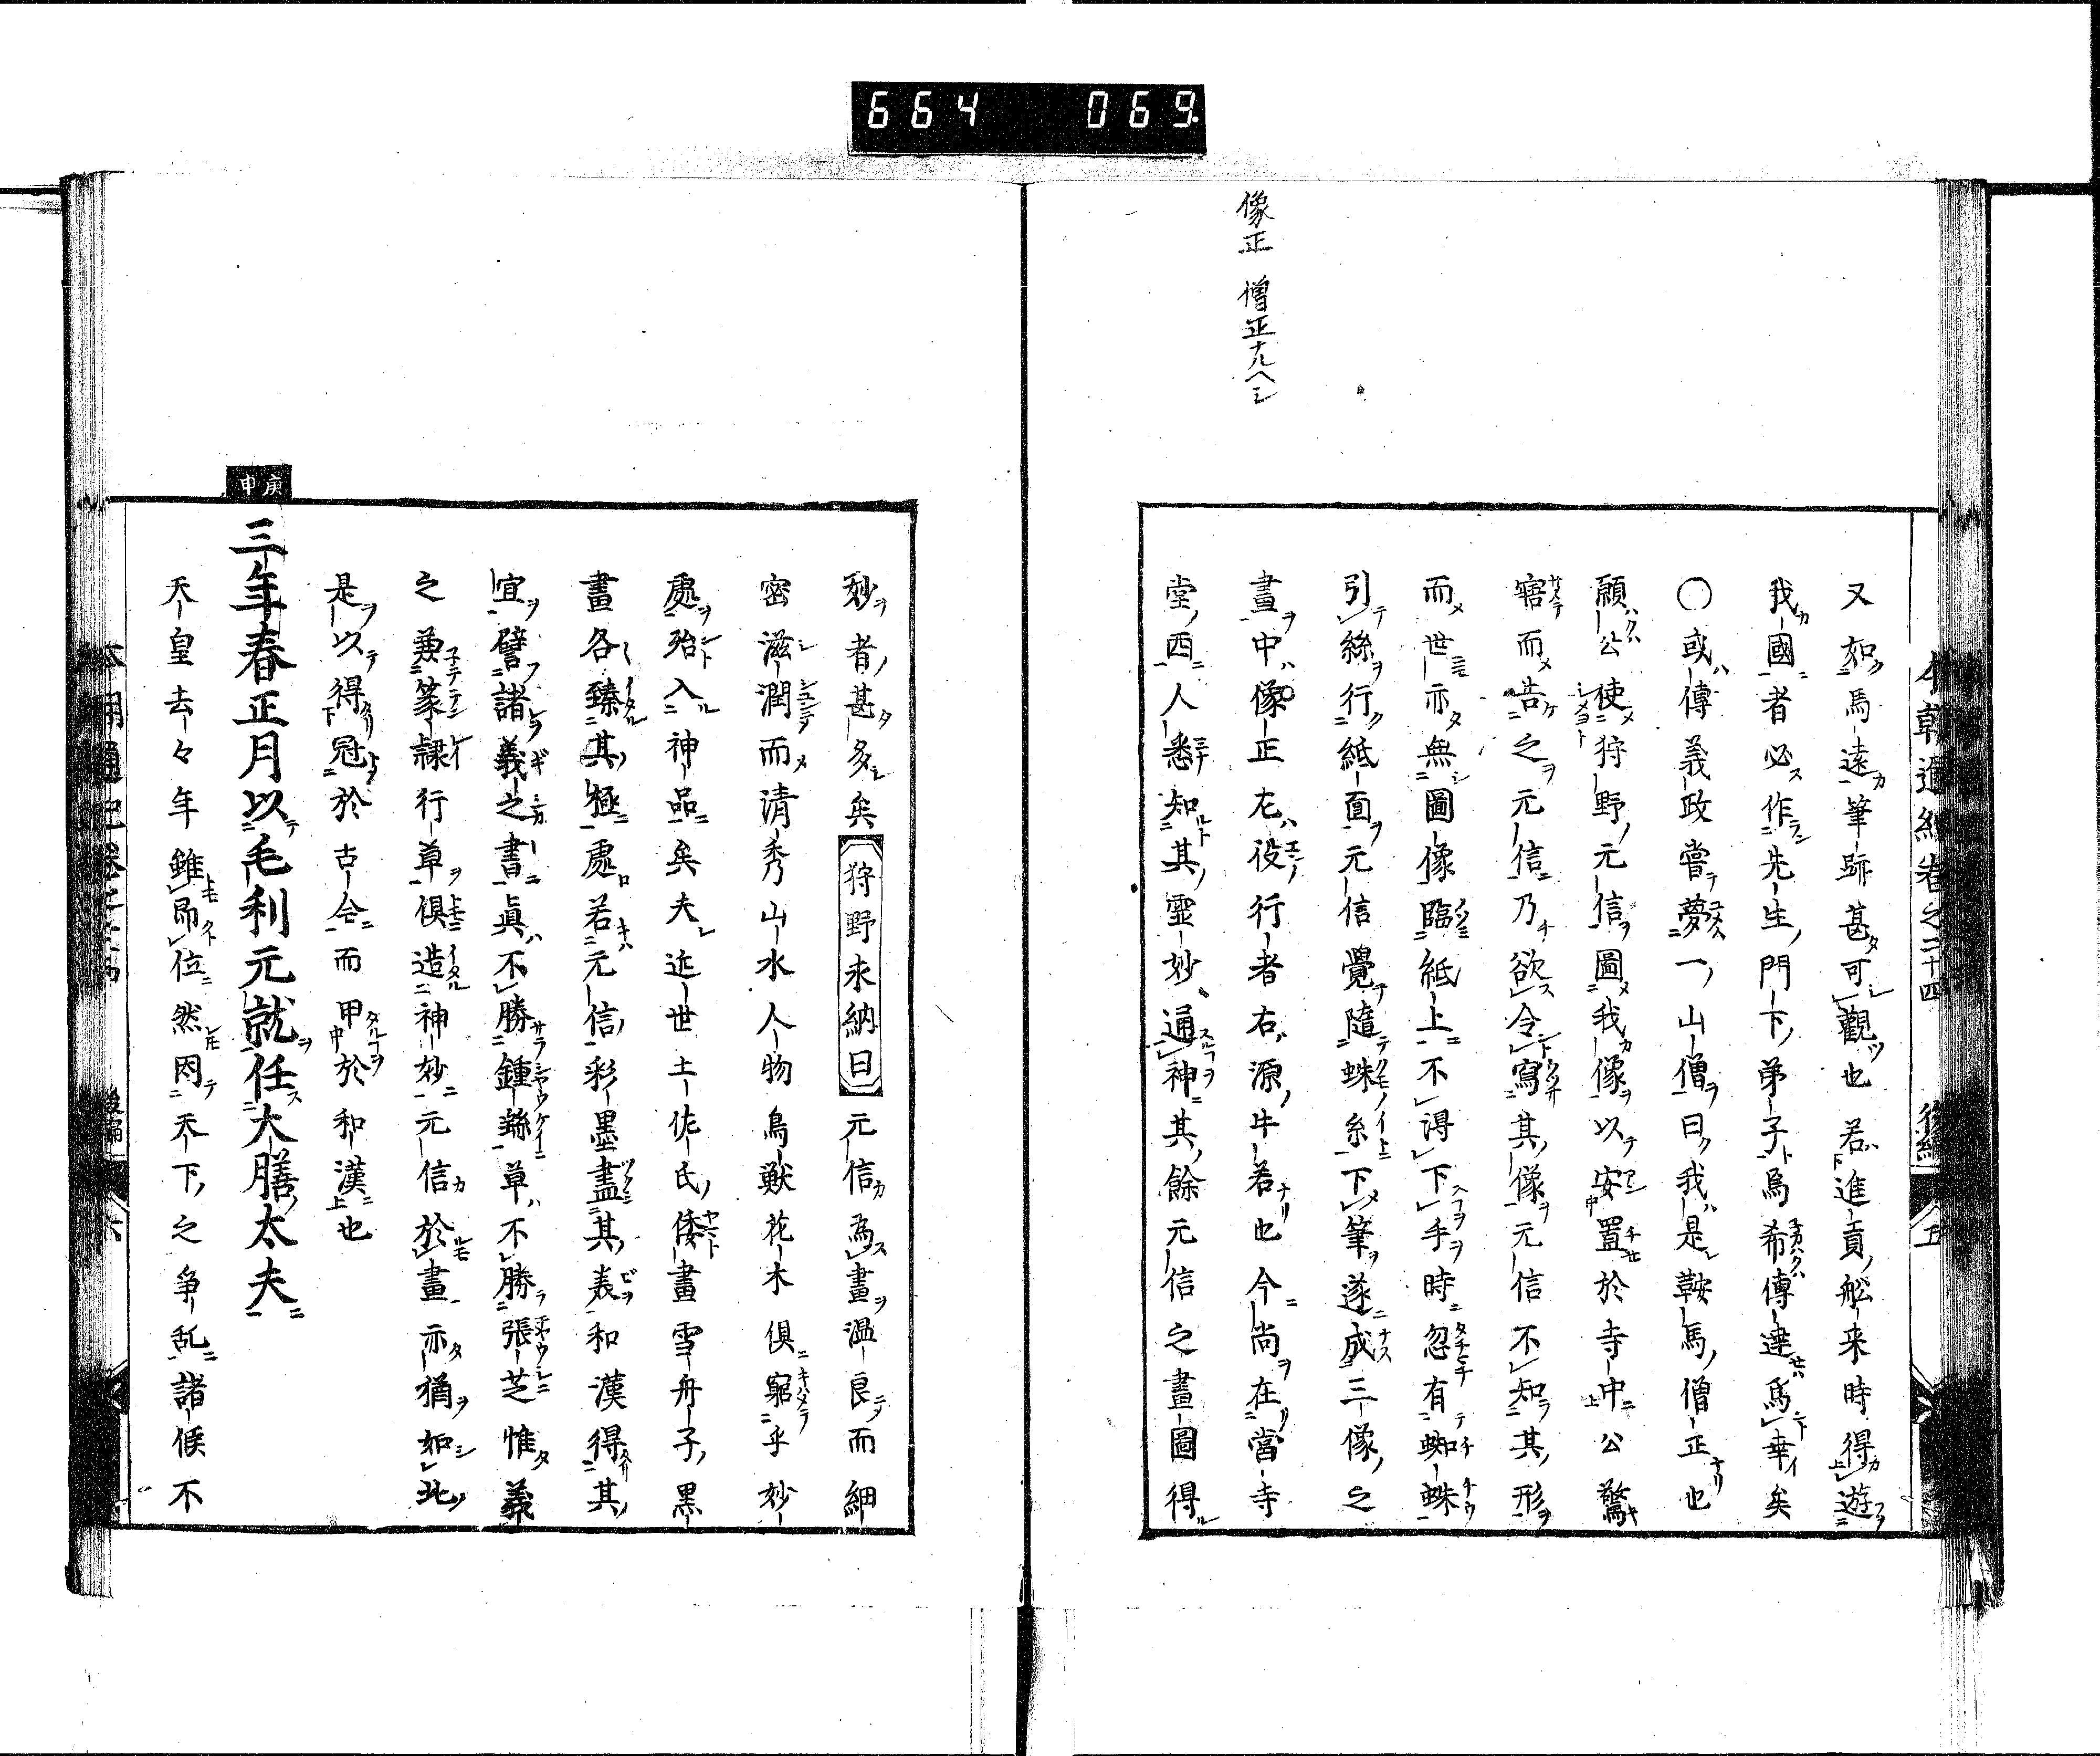 664 069
像正 僧正ナルヘシ
本朝通紀卷之二十四 後編 五
又如馬遠筆跡甚可觀也若進貢舩来時得遊
我國者必作先生門下弟子烏希傳達爲幸矣
〇或傳義政嘗夢一山僧曰我是鞍馬僧正也
願公使狩野元信圖我像以安置於寺中公驚
寤而告之元信乃欲令寫其像元信不知其形
而世亦無圖像臨紙上不得下手時忽有蜘蛛
引絲行紙面元信覺隨蛛糸下筆遂成三像之
畫中像正左役行者右源牛若也今尚在當寺
堂西人悉知其霊妙通神其餘元信之畫圖得
妙者甚多矣狩野永納曰元信為畫温良而細
密滋潤而清秀山水人物鳥獣花木俱窮乎妙
處殆入神品矣夫近世土佐氏倭畫雪舟子黒
畫各臻其極處若元信彩墨盡其義和漢得其
宜譬諸義之書眞不勝鍾繇草不勝張芝惟義
之兼篆隷行草俱造神妙元信於畫亦猶如此
是以得冠於古今而甲於和漢也
庚申
三年春正月以毛利元就任大膳太夫
天皇去々年雖即位然因天下之争乱諸侯不
本朝通紀卷之二十四 後編 六